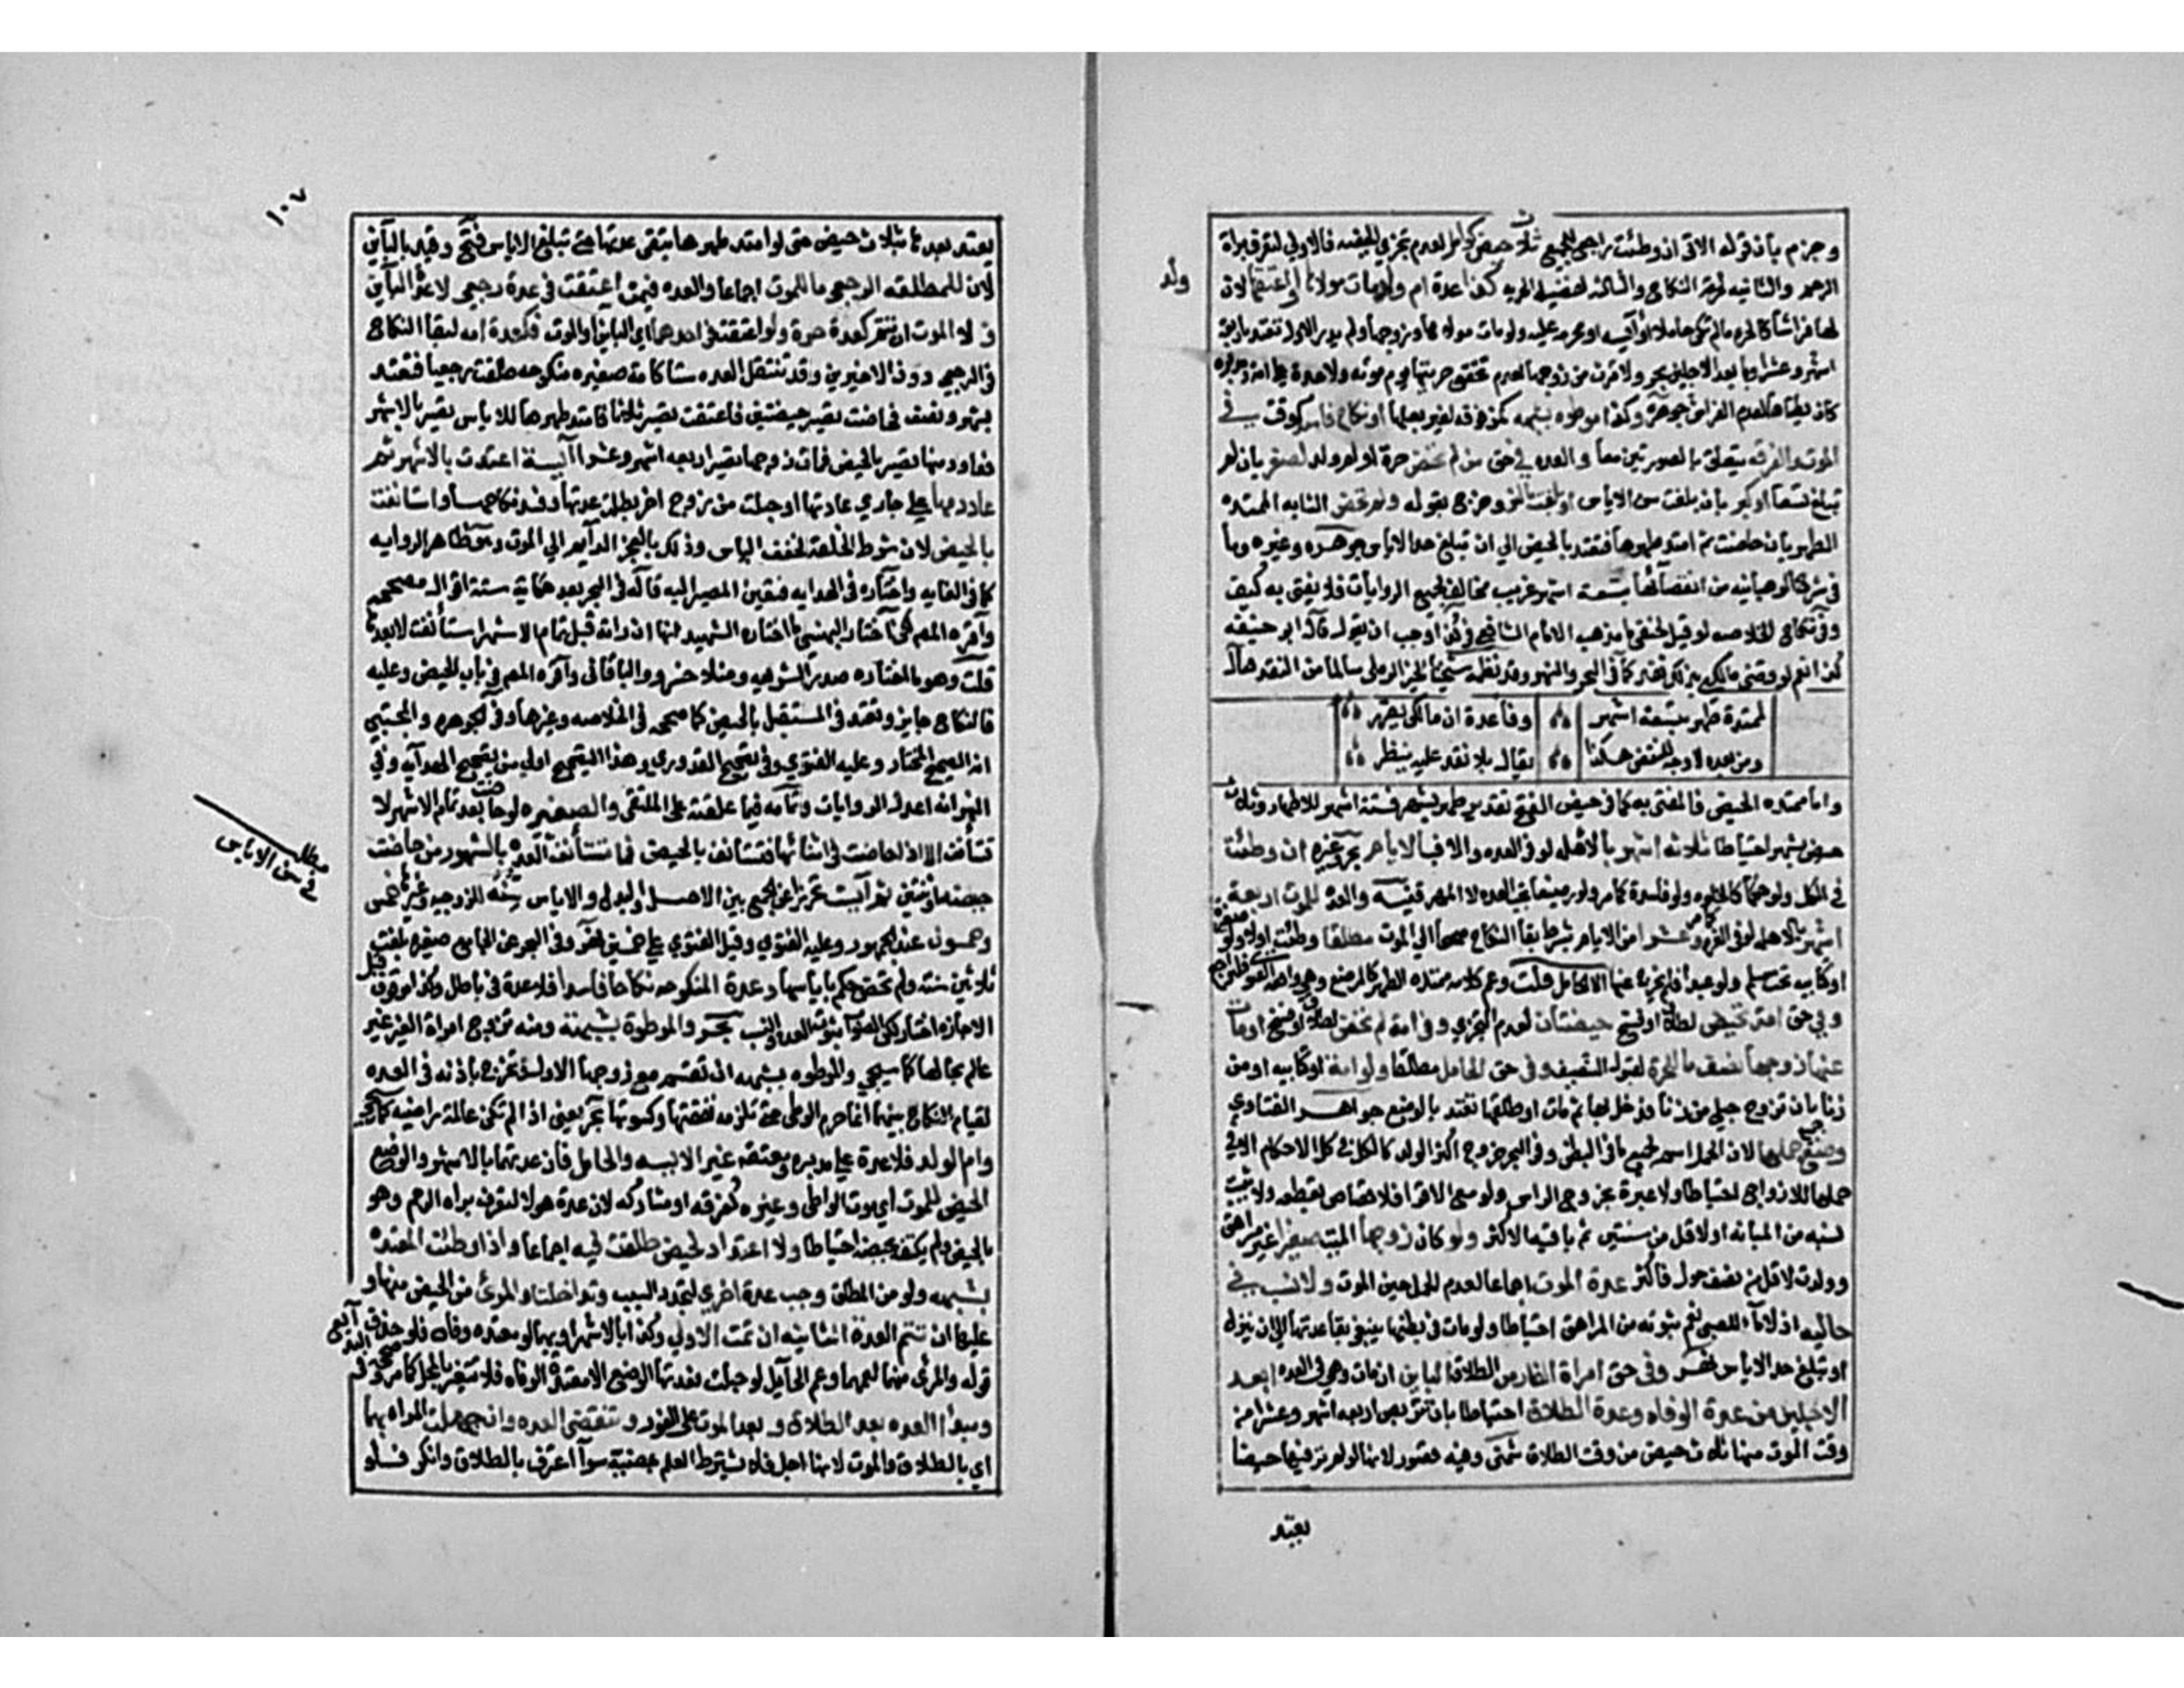 وجزم بأن قوله الاتى ان وطئت راجع للجميع ثلاث حيض كوامل لعدم تجزي الحيضه فالاولى لتعرف براة
الرحم والثانيه لحرمة النكاح والثالثه لفضيلة الحريه كذا عدة ام ولد مات مولاها او اعتقها لان
ولد
لها فراشا كالحره مالم تكن حاملا او آئيسه او محرمه عليه ولو مات مولاها وزوجها ولم يدر الاول تعتد باربعة
اشهر وعشر او بأبعد الاجلين بحر ولا ترث من زوجها لعدم تحقق حريتها يوم موته ولا عدة على امة ومدبره
كان يطأها لعدم الفراش جوهره وكذا موطؤه بشبهه كمزفوفه لغير بعلها او نكاح فاسد كموقت في
الموت والفرقه يتعلق بالصورتين معا والعده في حق من لم تحض حرة او ام ولد لصغر بان لم
تبلغ تسعا او كبر بان بلغت سن الاياس او بلغت بالسن وخرج بقوله ولم تحض الشابه الممتده
الطهر بان حاضت ثم امتد طهرها فتعتد بالحيض الي ان تبلغ حد الاياس جوهره وغيره وما
في شرح الوهبانيه من انقضائها بتسعة اشهر غريب مخالف لجميع الروايات فلا يفتى به كيف
وفي نكاح الخلاصه لو قيل لحنفي ما مذهب الامام الشافعي في كذا وجب ان يقول قال ابو حنيفه
كذا نعم لو قضى مالكي بذلك نفذ كما في البحر والنهر وقد نظمه شيخنا الخير الرملي سالما من النقد فقال
لممتدة طهر بتسعة اشهر وفا عدة ان مالكي يقدر
ومن بعده لا وجه للنقض هكذا يقال بلا نقد عليه ينظر
واما ممتده الحيض فالمفتى به كما في حيض الفتح تقدير طهرها بشهر فستة اشهر للاطهار وثلاث
حيض بشهر احتياطا ثلاثه اشهر بالاهله لو في الغره والا فبالايام بحر وغيره ان وطئت
في الكل ولو حكما كالخلوه ولو فاسدة كما مر ولو رضيعا تجب العده لا المهر قنيه والعدة للموت اربعة
اشهر بالاهله لو في الغره كما مر وعشر من الايام بشرط بقا النكاح صحيحا الي الموت مطلقا وطئت او لا ولو صغيرة
او كتابيه تحت مسلم ولو عبدا فلم يخرج عنها الا الحامل قلت وعم كلامه ممتده الطهر كالمرضع وهي واقعة الفتوى
وفي حق امة تحيض لطلاق او فسخ حيضتان لعدم التجزي وفي امة لم تحض لطلاق او فسخ او مات
عنها زوجها نصف ما للحرة لقبول التنصيف وفي حق الحامل مطلقا ولو امة او كتابيه او من
زنا بان تزوج حبلى من زنا ودخل بها ثم مات او طلقها تعتد بالوضع جواهر الفتاوي
وضع جميع حملها لان الحمل اسم لجميع ما في البطن وفي البحر خروج اكثر الولد كالكل في كل الاحكام الا في
حلها للازواج احتياطا ولا عبرة بخروج الراس ولو مع الاقل فلا قصاص بقطعه ولا يثبت
نسبه من المبانه لو لاقل من سنتين ثم باقيه لاكثر ولو كان زوجها الميت صغيرا غير مراهق
وولدت لاقل من نصف حول فاكثر عدة الموت اجماعا لعدم الحمل حين الموت ولا نسب في
حاليه اذ لا ماء للصبي نعم ثبوته من المراهق احتياطا ولو مات في بطنها ينبغي بقا عدتها الي ان ينزل
او تبلغ حد الاياس نهر وفي حق امراة الفار من الطلاق البائن ان مات وهي في العده ابعد
الاجلين من عدة الوفاه وعدة الطلاق احتياطا بان تتربص اربعه اشهر وعشرا من
وقت الموت فيها ثلاث حيض من وقت الطلاق شمنى وفيه قصور لانها لو لم تر فيها حيضا
تعتد
١٠٧
تعتد بعدها بثلاث حيض حتى لو امتد طهرها تبقى عدتها حتى تبلغ الاياس فتح وقيد بالبائن
لان للمطلقه الرجعي ما للموت اجماعا والعده فيمن اعتقت في عدة رجعي لا عدة البائن
ولا الموت ان تتم كعدة حرة ولو اعتقت في احدهما اي البائن او الموت فكعدة امه لبقا النكاح
في الرجعي دون الاخيرين وقد تنتقل العده ستا كامة صغيره منكوحه طلقت رجعيا فتعتد
بشهر ونصف فحاضت تصير حيضتين فاعتقت تصير ثلاثا فامتد طهرها للاياس تصير بالاشهر
فعاد دمها تصير بالحيض فمات زوجها تصير اربعه اشهر وعشرا آئيسة اعتدت بالاشهر ثم
عاد دمها على جاري عادتها او حبلت من زوج اخر بطلت عدتها وفسد نكاحها واستانفت
بالحيض لان شرط الخلفة تحقق الياس وذلك بالعجز الدائم الي الموت وهو ظاهر الروايه
كما في الغايه واختاره في الهدايه فتعين المصير اليه قاله في البحر بعد حكاية ستة اقوال مصححه
واقره المص لكن اختار البهنسي ما اختاره الشهيد انها ان راته قبل تمام الاشهر استأنفت لا بعدها
قلت وهو ما اختاره صدر الشريعه ومنلا خسرو والباقاني واقره المص في باب الحيض وعليه
فالنكاح جايز وتعتد في المستقبل بالحيض كما صححه في الخلاصه وغيرها وفي الجوهره والمجتبى
انه الصحيح المختار وعليه الفتوي وفي تصحيح القدوري وهذا التصحيح اولى من تصحيح الهدايه وفي
النهر انه اعدل الروايات وتمامه فيما علقته على الملتقى والصغيره لو حاضت بعد تمام الاشهر لا
تستأنف الا اذا حاضت في اثنائها فتستانف بالحيض كما تستأنف العدة بالشهور من حاضت
مطلب
في سن الاياس
حيضة او ثنتين ثم آيست تحرزا عن الجمع بين الاصل والبدل والاياس سنة للروميه وغيرها خمس
وخمسون عند الجمهور وعليه الفتوي وقيل الفتوي على خمسين نهر وفي البحر عن الجامع صغيره بلغت
ثلاثين سنة ولم تحض حكم باياسها وعدة المنكوحه نكاحا فاسدا فلا عدة في باطل وكذا موقوف قبل
الاجازه اختيار لكن الصواب ثبوت العده والنسب بحر والموطوة بشبهة ومنه تزوج امراة الغير غير
عالم بحالها كما سيجي وللموطوه بشبهه ان تقيم مع زوجها الاول وتخرج باذنه في العده
لقيام النكاح بينهما انما حرم الوطى حتى تلزمه نفقتها وكسوتها بحر يعنى اذا لم تكن عالمة راضيه كما سيجي
وام الولد فلا عدة على مدبره ومعتقه غير الايسه والحامل فان عدتهما بالاشهر والوضع
الحيض للموت اي موت الواطى وغيره كفرقه او متاركه لان عدة هولا لتعرف براه الرحم وهو
بالحيض ولم يكتف بحيضه احتياطا ولا اعتداد لحيض طلقت فيه اجماعا واذا وطئت المعتده
بشبهه ولو من المطلق وجب عدة اخري لتجدد السبب وتداخلتا والمرئ من الحيض منهما و
عليها ان تتم العدة الثانيه ان تمت الاولى وكذا بالاشهر او بهما لو معتده وفاه فلو حذف
قوله والمرئى منهما لعمهما وعم الحايل لو حبلت فعدتها الوضع الا معتدة الوفاه فلا تتغير بالحمل كما مر
ومبدا العده بعد الطلاق وبعد الموت على الفور وتنقضي العده وان جهلت المراه بهما
اي بالطلاق والموت لانها اجل فلا يشترط العلم بمضيه سوا اعترف بالطلاق وانكر فلو